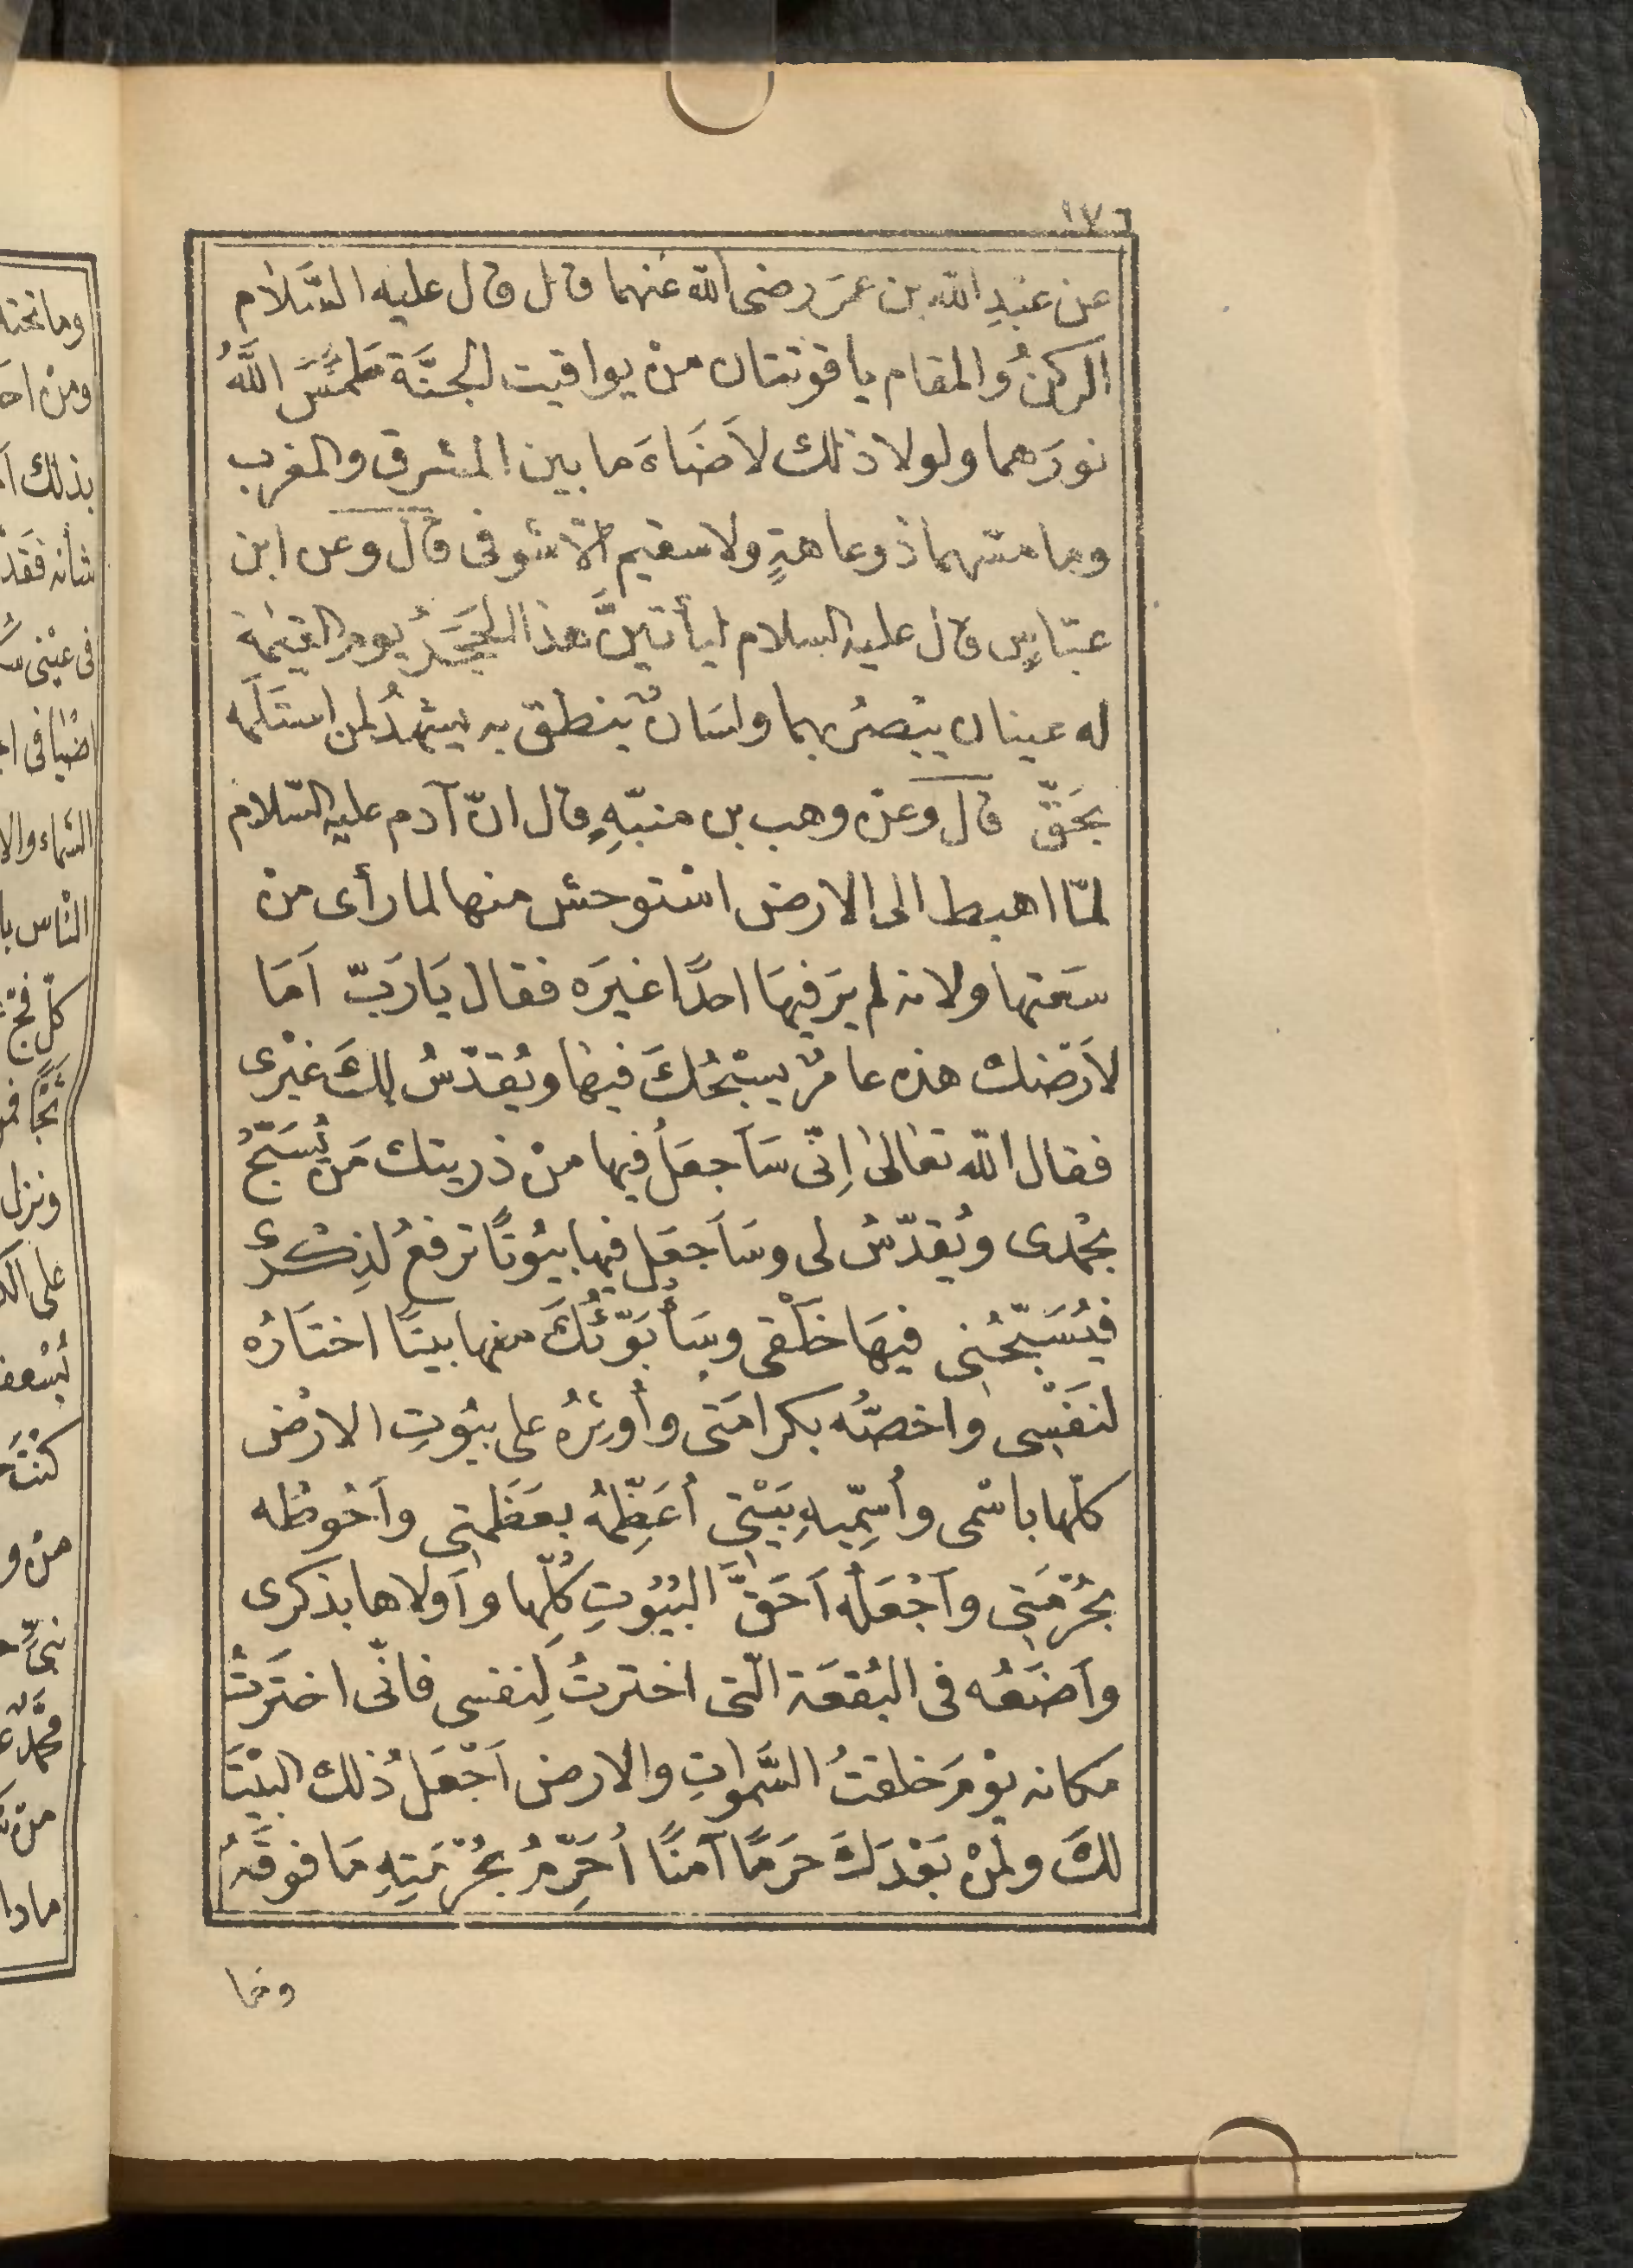 ١٧٦
عن عَبْدِ الله بن عمَرَ رضى الله عَنهما قال قال عليه السَّلام
اَلركنُ والمقام ياقوتتان منْ يواقيت الجنَّة طَمَسَ اللَّهُ
نورَهما ولولا ذلك لاَضَاءَ ما بين المشرق والمغرب
وما مسّهما ذوعاهةٍ ولا سقيم الّا شوفى قال وعن ابن
عبّاسٍ قال عليه السلام ليأتينَّ هذا الحَجَرُ يوم القيٰمة
له عينان يبْصرُ بهما ولسَانٌ ينطق به يشهدُ لمن استَلَمه
بحَقّ قال وعنْ وهب بن منبّهٍ قال انّ آدم عليه السّلام
لمّا اهبط الى الارض استوحش منها لما رأى منْ
سَعتها ولانه لم يَرَ فيهَا احدًا غيرَه فقال يَارَبّ اَمَا
لاَرْضك هذه عامرٌ يسبّحُكَ فيها ويُقدّسُ لكَ غيْرى
فقال الله تعالىٰ اِنّى سَاَجعَلُ فيها منْ ذريتك مَنْ يُسَبّحُ
بحْمدى ويُقدّسُ لى وسَاَجعَل فيها بيُوتًا ترفعُ لذِكْرى
فيُسَبّحُنى فيهَا خَلْقى وسَأُبَوّئُكَ منها بيتًا اختَارُه
لنَفْسِى واخصّه بكرامَتى وأُوثِرُه على بيُوتِ الارْض
كلّها باسْمى وأُسَمِّيهِ بَيْتى أُعَظِّمُه بعَظَمتى وأَحُوطُه
بحُرْمَتى وأَجْعَلُه اَحَقَّ البُيُوتِ كُلِّها واَولاها بذكرى
واَضَعُه فى البُقعَة الّتى اخترتُ لِنفسى فانّى اختَرْتُ
مكانه يوْمَ خلقتُ السَّمواتِ والارض اَجْعَلُ ذلك البيْتَ
لكَ ولمنْ بَعْدَكَ حَرَمًا آمنًا أُحَرِّمُ بحُرْمَتِهِ مَا فوقَهُ
وما